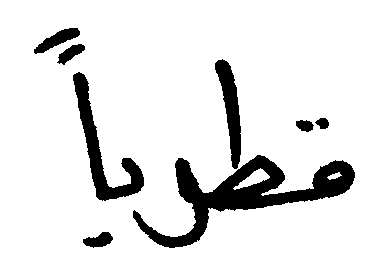 قطرياً